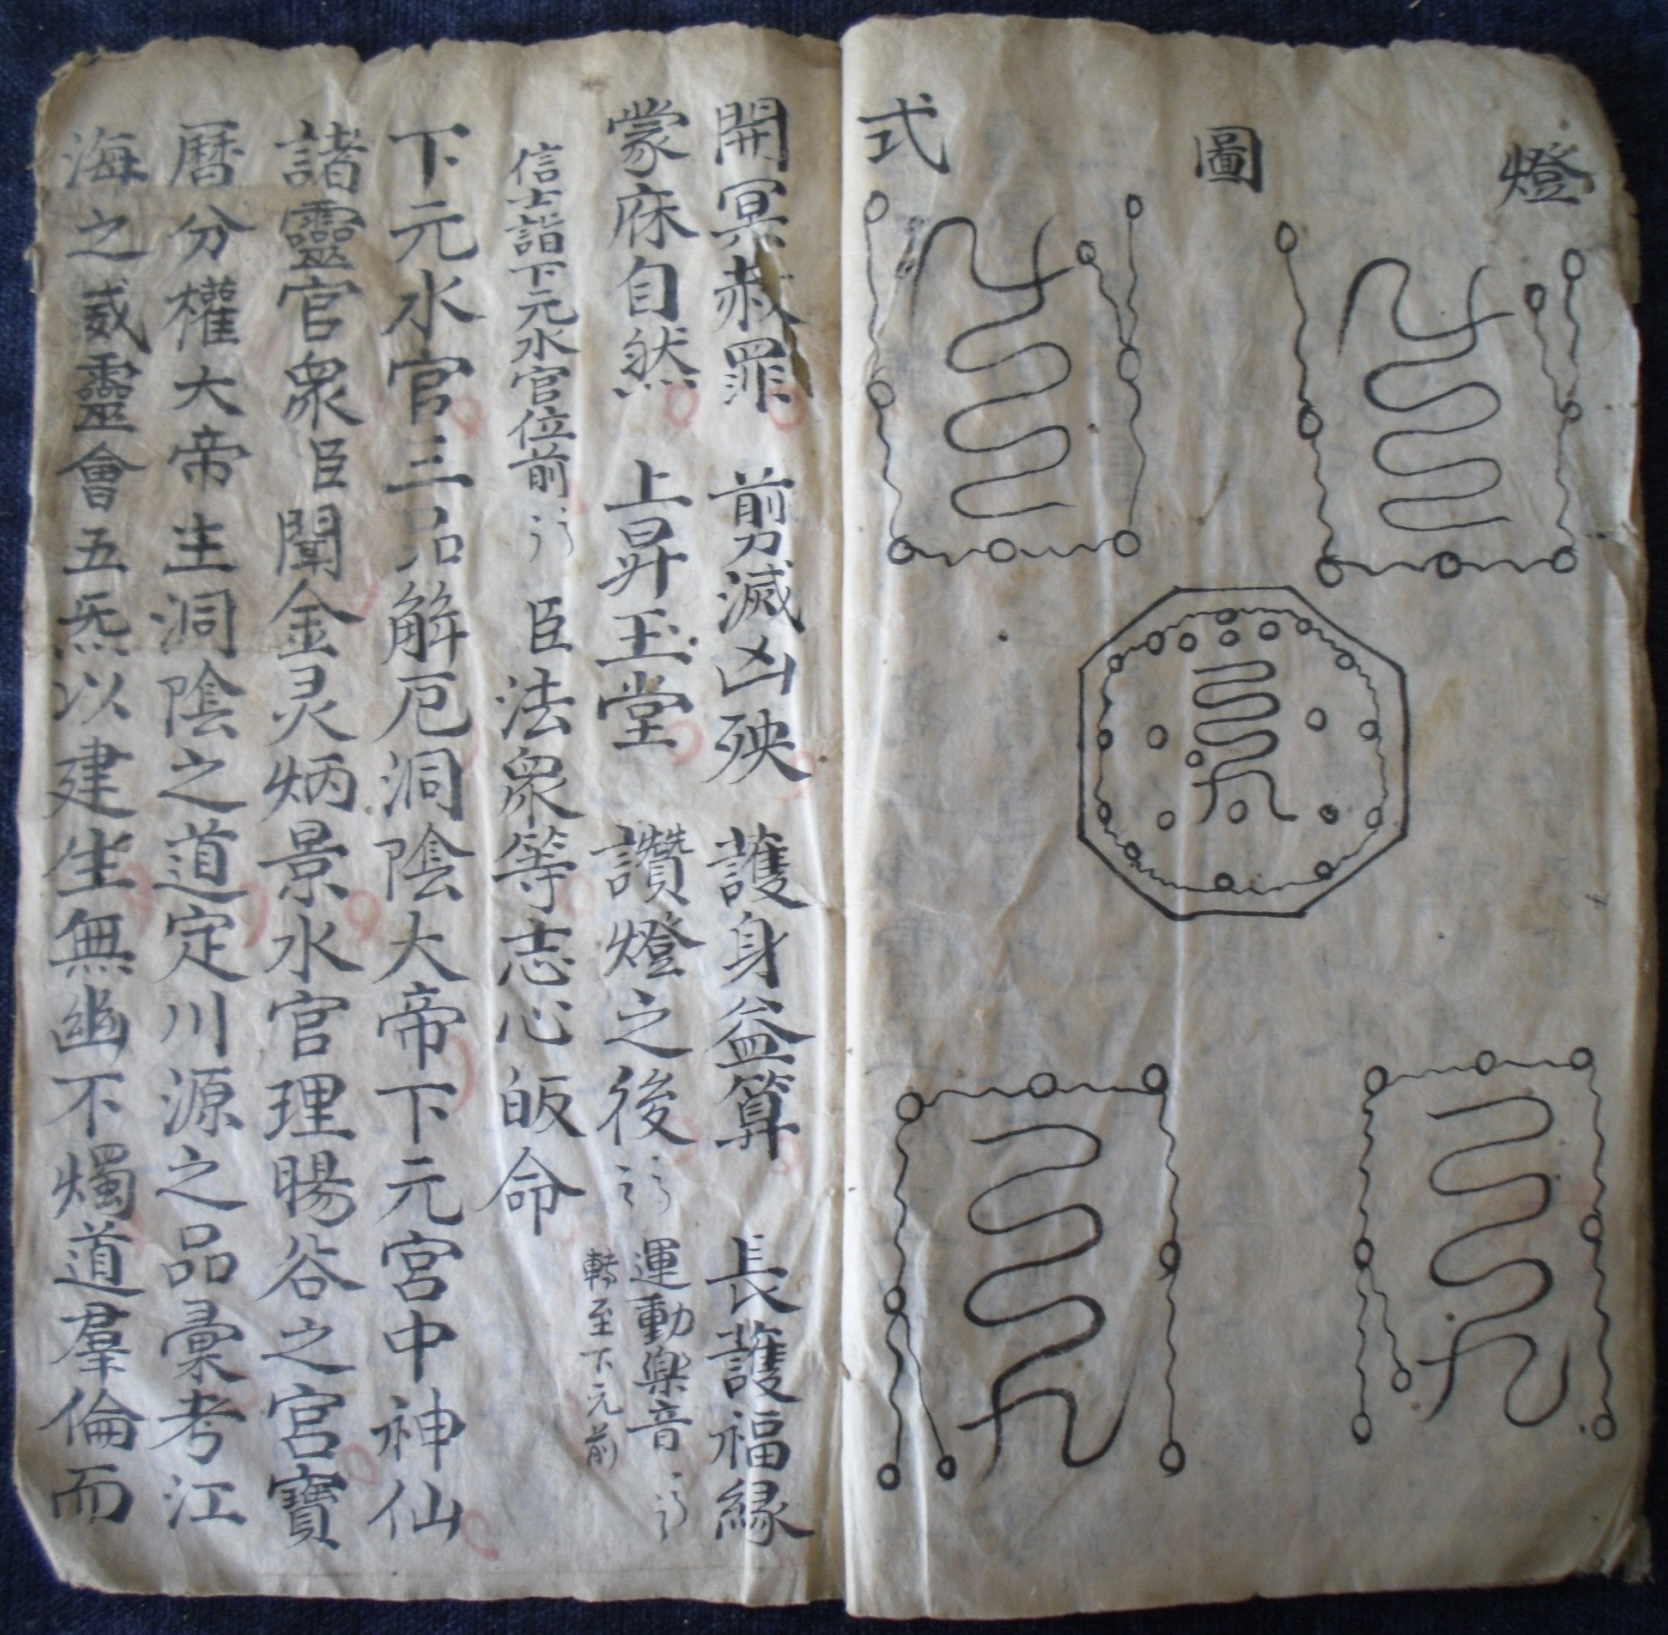 燈圖式
開冥赦罪 剪滅凶殃 護身益算 長護福緣
蒙庥自然 上昇玉堂 讚燈之後 運動楽音
轉至下元前
信士詣下元水官位前 臣法眾等志心皈命
下元水官三品解厄洞陰大帝下元宮中神仙
諸靈官眾臣聞金灵炳景水官理暘谷之宮寶
曆分權大帝主洞陰之道定川源之品彙考江
海之威靈會五炁以建生無幽不燭道羣倫而